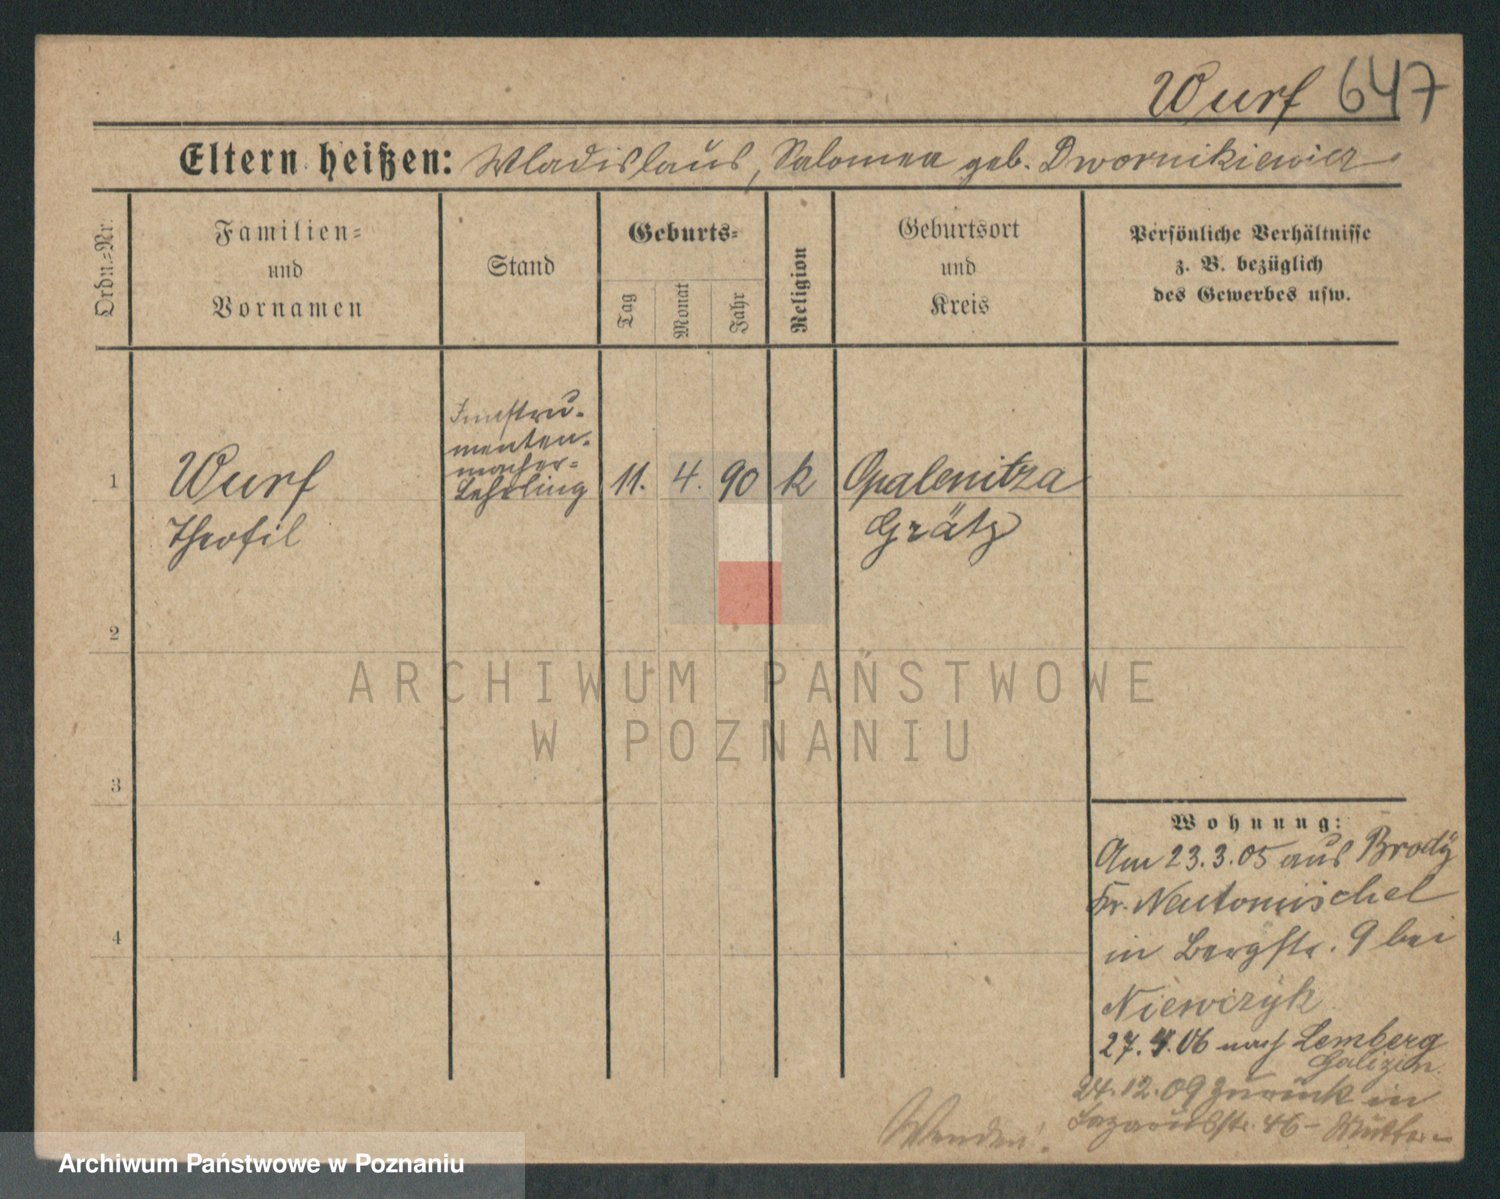 Wurf 647
Eltern heißen: Wladislaus, Salomea geb. Dwornikiewicz
Ordn.-Nr.
Familien-
und
Vornamen
Stand
Geburts-
Tag
Monat
Jahr
Religion
Geburtsort
und
Kreis
Persönliche Verhältnisse
z. B. bezüglich
des Gewerbes usw.
Instru-
menten-
macher-
Lehrling
1 Wurf 11. 4. 90 k Opalenitza
Theofil Grätz
2
3
4
Wohnung:
Am 23.3.05 aus Brody
Kr. Neutomischel
in Bergstr. 9 bei
Niewczyk
27.4.06 nach Lemberg
Galizien.
24.12.09 zurück in
Lazarusstr. 46 - Mutter -
Wenden!
ARCHIWUM PAŃSTWOWE
W POZNANIU
Archiwum Państwowe w Poznaniu